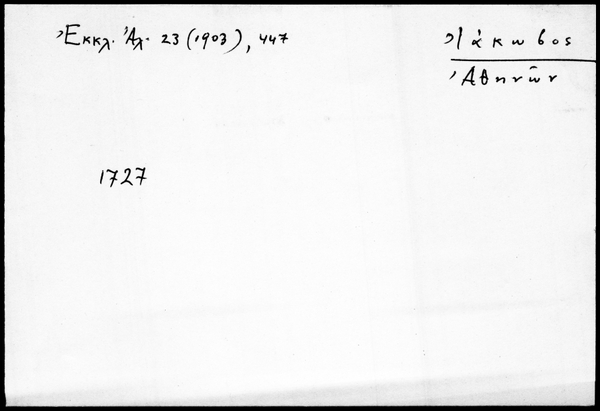 Ἐκκλ. Ἀλ. 23 (1903), 447
Ἰάκωβος
Ἀθηνῶν
1727